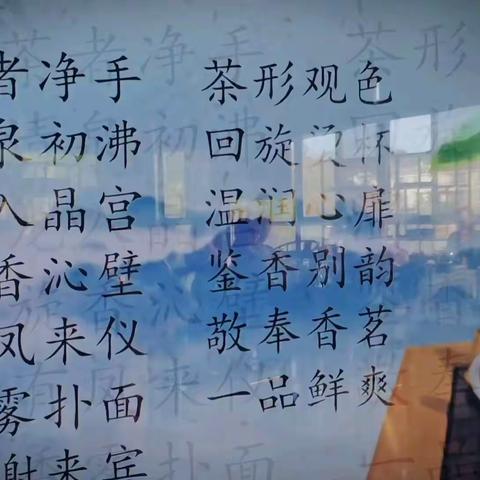 者净手
泉初沸
入晶宫
香沁壁
凤来仪
雾扑面
谢来宾
茶形观色
回旋烫杯
温润心扉
鉴香别韵
敬奉香茗
一品鲜爽